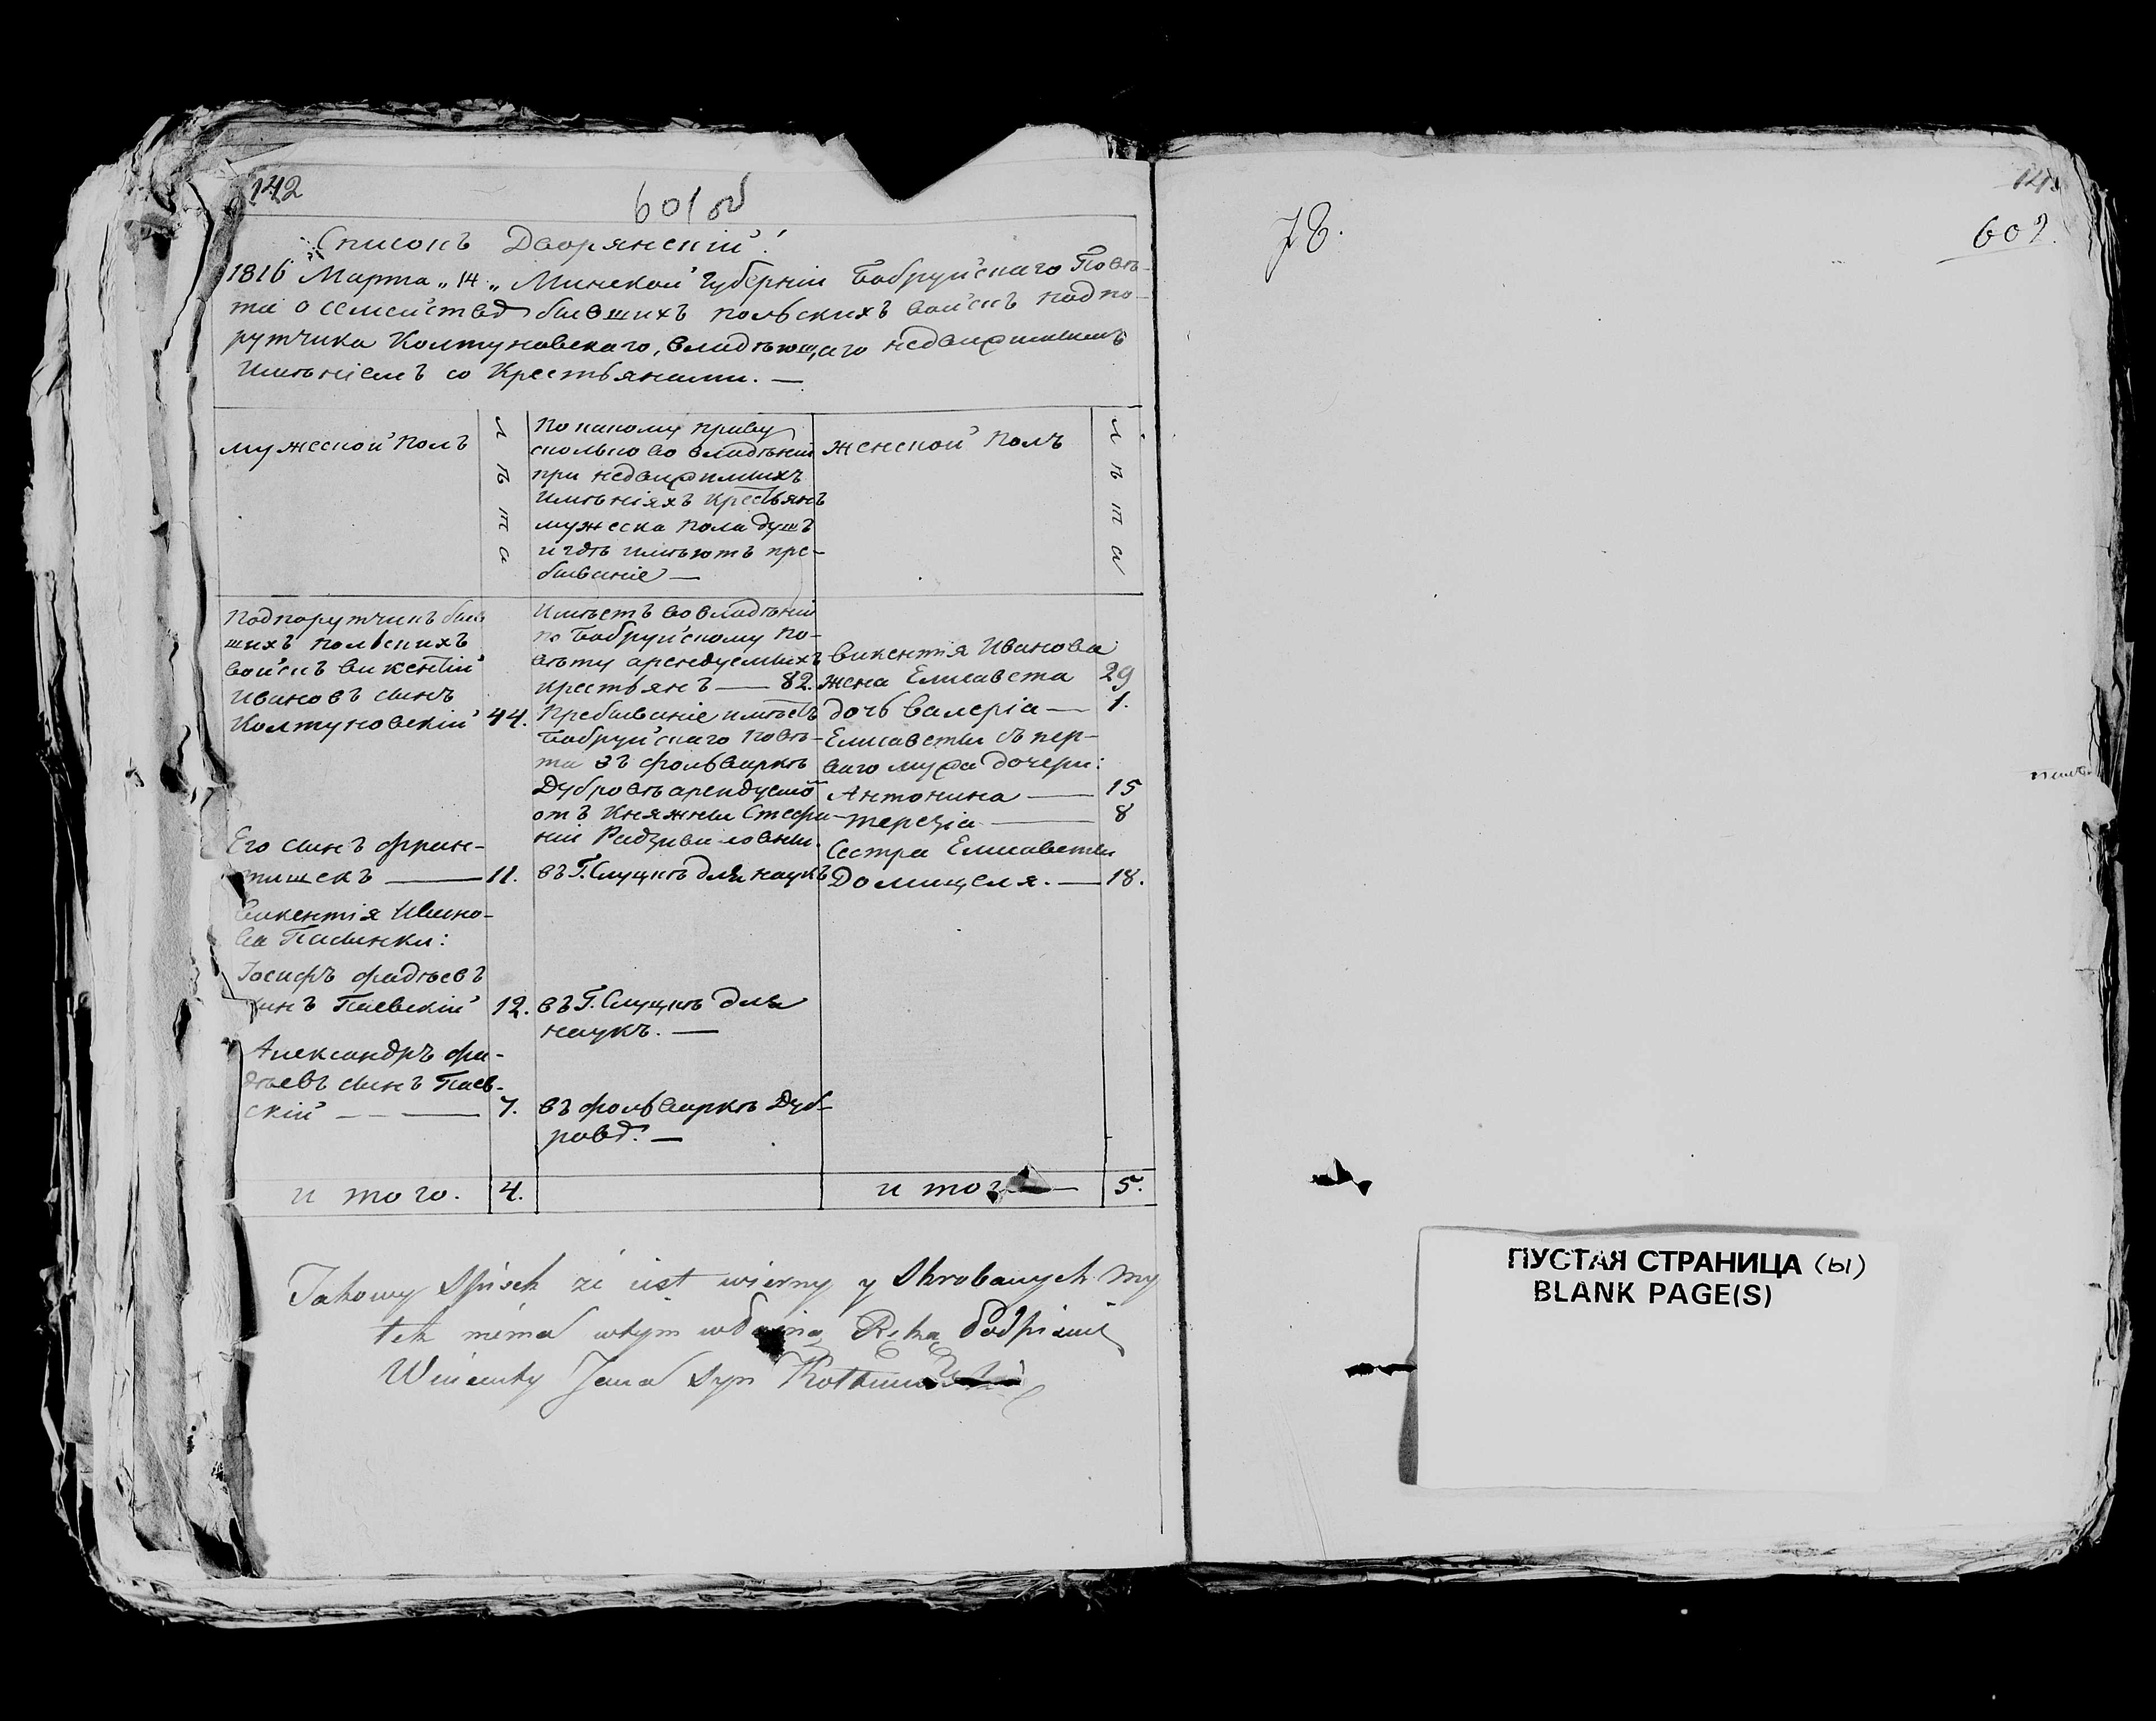 142
601об
Списокъ Дворянскій!
1816 Марта „14„ Минской Губерніи Бобруйскаго Повѣ-
та о семействѣ бывшихъ польскихъ войскъ подпо-
рутчика Колтуновскаго, владѣющаго недвижимымъ
Имѣніемъ со Крестьянами. —
мужеской полъ
лѣта
По какому праву
сколько во владѣніи
при недвижимыхъ
Имѣніяхъ Крестьянъ
мужеска пола душъ
и гдѣ имѣютъ пре-
бываніе —
женской полъ
лѣта
Подпорутчикъ быв
шихъ польскихъ
войскъ Викентій
Ивановъ сынъ
Колтуновскій 44.
Имѣетъ во владѣніи
по Бобруйскому по-
вѣту арендуемыхъ
крестьянъ — 82.
Пребываніе имѣетъ
Бобруйскаго повѣ-
та въ фольваркѣ
Дубровѣ арендуемо
отъ Княжны Стефа-
ніи Радзивиловны.
Викентія Иванова
жена Елисавета 29
дочь Валеріа — 1.
Елисаветы съ пер-
ваго мужа дочери:
Антонина — 15
Терезіа — 8
Сестра Елисаветы
Домицеля. — 18.
Его сынъ Фран-
тишекъ — 11.
въ Г. Слуцкѣ для наукъ
Викентія Ивано-
ва Пасынки:
Іосифъ Фадѣевъ
сынъ Паевскій 12.
въ Г. Слуцкѣ для
наукъ. —
Александръ Фа-
дѣевъ сынъ Паев-
скій — 7.
въ фольваркѣ Дуб-
ровѣ. —
итого. 4.
итого — 5.
Takowy Spisek że iest wierny y Skrobanych my
łek niema wtym własną Ręką Podpisuię
Wincenty Jana Syn Kołtunowski
78.
602.
ПУСТАЯ СТРАНИЦА (ы)
BLANK PAGE(S)